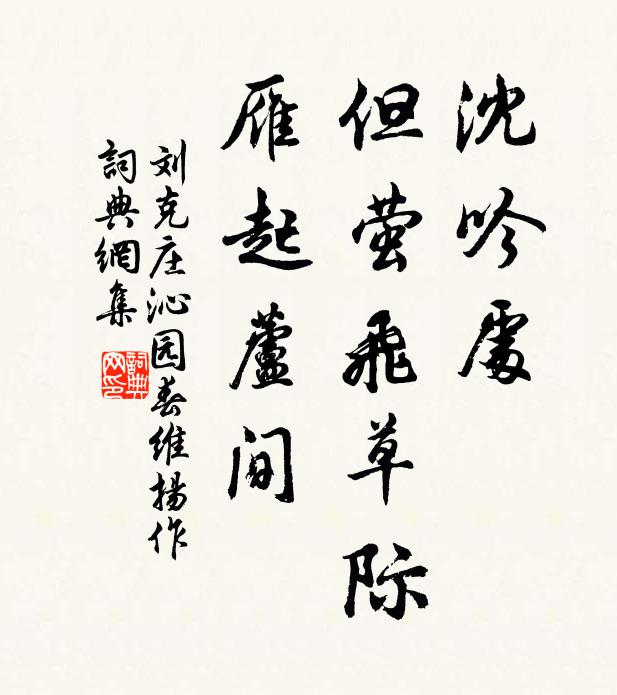 沈吟處
但萤飛草際
雁起蘆间
刘克庄沁园春維揚作
詞典網集
詞典網印